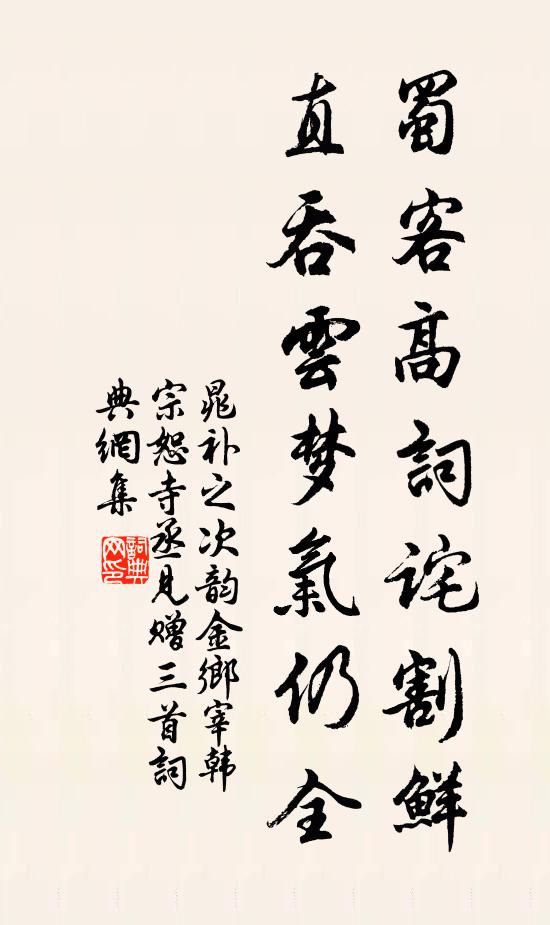 蜀客高詞詫割鮮
直吞雲梦氣仍全
晁补之次韵金鄉宰韩
宗恕寺丞見赠三首詞
典網集
詞典网印